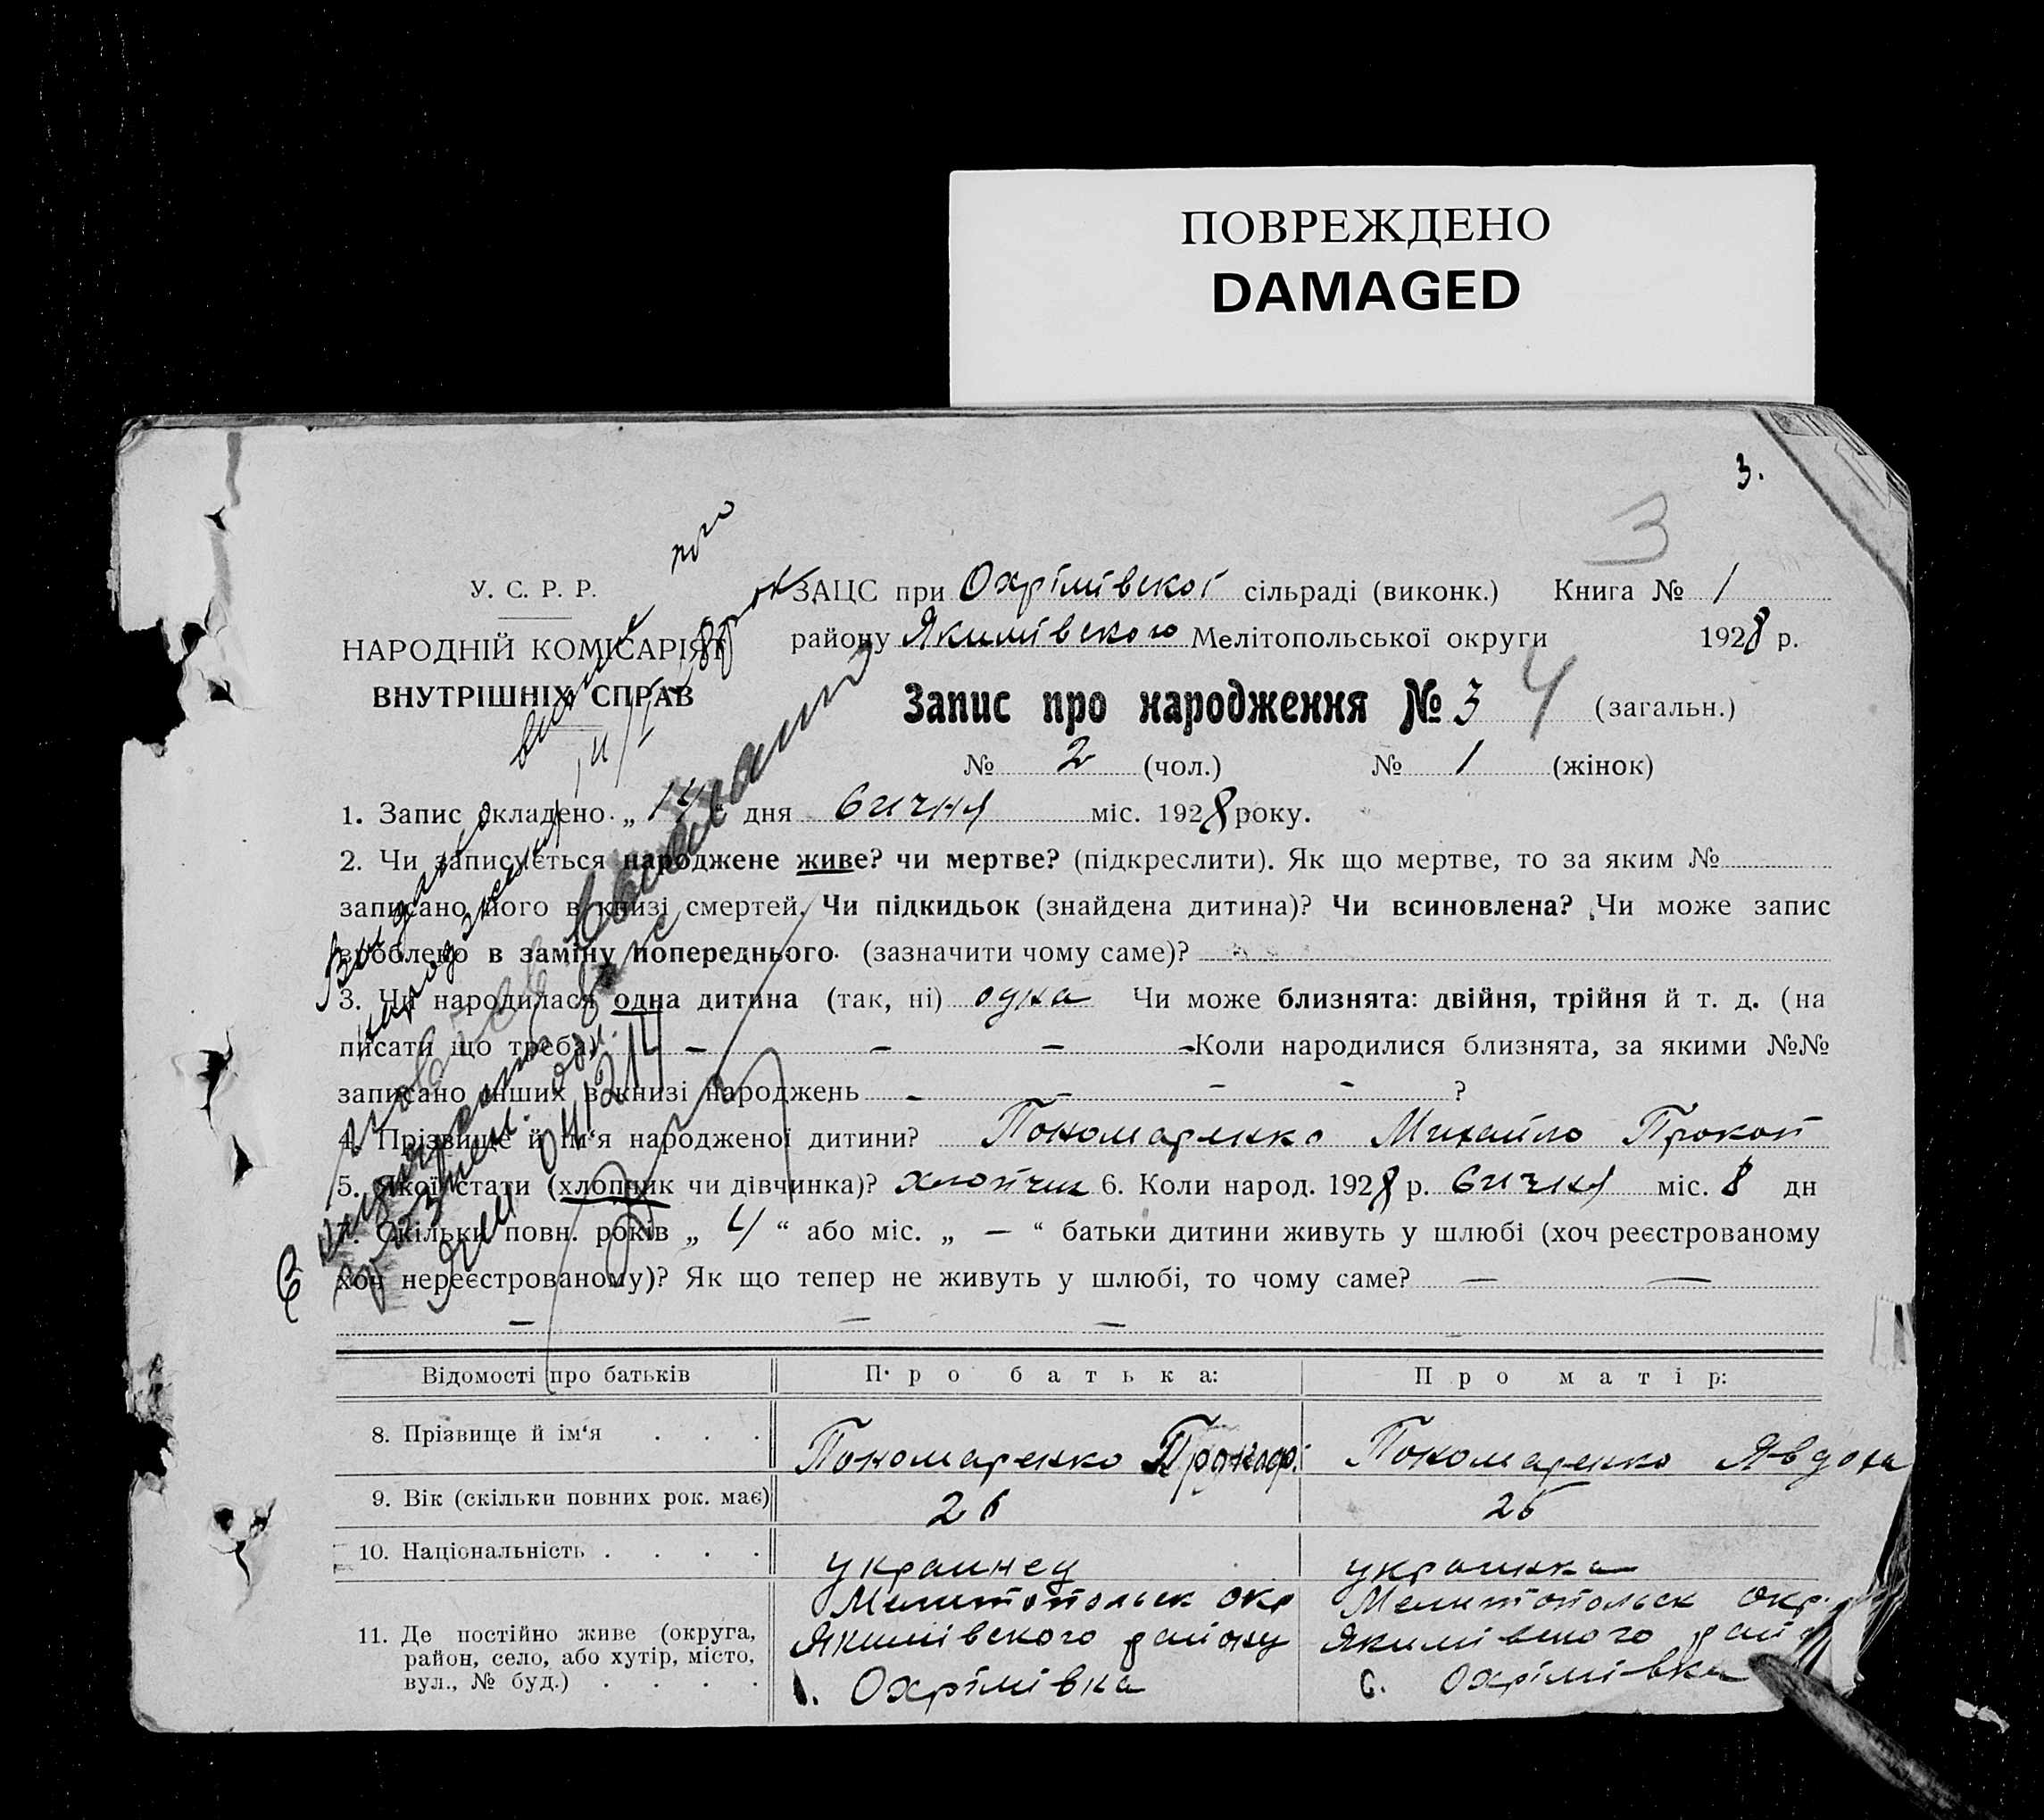 ПОВРЕЖДЕНО
DAMAGED
3.
3
У. С. Р. Р.
НАРОДНІЙ КОМІСАРІЯТ
ВНУТРІШНІХ СПРАВ
ЗАЦС при Охрімівскої сільраді (виконк.) Книга № 1
району Якимівского Мелітопольської округи 1928 р.
Запис про народження № 3 4 (загальн.)
№ 2 (чол.) № 1 (жінок)
1. Запис складено „ 14 “ дня сичня міс. 1928 року.
2. Чи записується народжене живе? чи мертве? (підкреслити). Як що мертве, то за яким №
записано його в книзі смертей. Чи підкидьок (знайдена дитина)? Чи всиновлена? Чи може запис
зроблено в заміну попереднього. (зазначити чому саме)?
3. Чи народилася одна дитина (так, ні) одна Чи може близнята: двійня, трійня й т. д. (на
писати що треба) – – – – Коли народилися близнята, за якими №№
записано інших в книзі народжень – – – ?
4. Прізвище й ім‘я народженої дитини? Пономаренко Михайло Прокоп
5. Якої стати (хлопчик чи дівчинка)? хлопчик 6. Коли народ. 1928 р. сичня міс. 8 дн
7. Скільки повн. років „ 4 “ або міс. „ — “ батьки дитини живуть у шлюбі (хоч реєстрованому
хоч нереєстрованому)? Як що тепер не живуть у шлюбі, то чому саме? — —
– – – –
Відомості про батьків Про батька: Про матір:
8. Прізвище й ім‘я . . . Пономаренко Прокоф. Пономаренко Явдоха
9. Вік (скільки повних рок. має) 26 25
10. Національність . . . . украинец украинка
Мелитопольск окр Мелитопольск окр.
11. Де постійно живе (округа, Якимівского району Якимівского рай
район, село, або хутір, місто,
вул., № буд.) . . . . с. Охрімівка с. Охрімівка